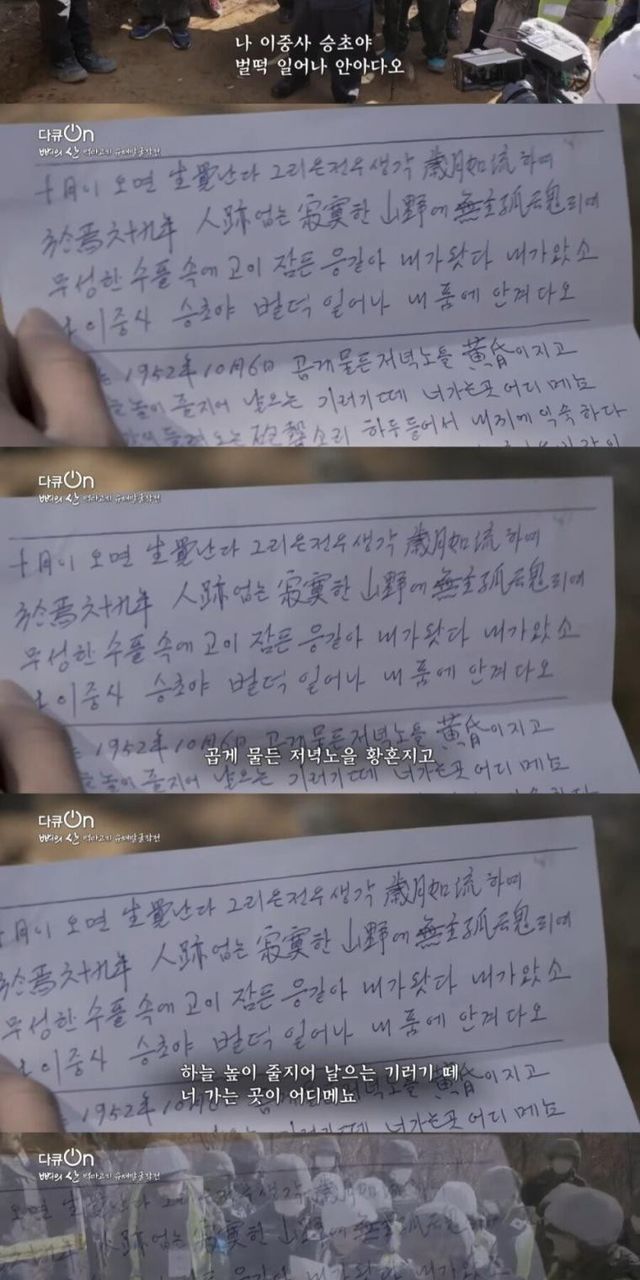 나 이중사 승초야
벌떡 일어나 안아다오
다큐On
뼈의 산
十月이 오면 生覺난다 그리운전우생각 歲月如流하여
於焉六十九年 人跡업는 寂寞한 山野에 無主孤云鬼되여
무성한 수풀 속에 고이 잠든 응길아 내가왓다 내가왔소
이중사 승초야 벌덕 일어나 내 품에 안겨다오
1952年 10月6日 곱게물든저녁노을 黃昏이지고
높이 줄지어 날으는 기러기떼 너가는곳 어디메뇨
소리 하두들어서 내귀에 익숙하다
다큐On
뼈의 산
十月이 오면 生覺난다 그리운전우생각 歲月如流하여
於焉六十九年 人跡업는 寂寞한 山野에 無主孤云鬼되여
무성한 수풀 속에 고이 잠든 응길아 내가왓다 내가왔소
이중사 승초야 벌덕 일어나 내 품에 안겨다오
1952年 10月6日 곱게물든저녁노을 黃昏이지고
곱게 물든 저녁노을 황혼지고
줄지어 날으는 기러기떼 너가는곳 어디메뇨
다큐On
뼈의 산
十月이 오면 生覺난다 그리운전우생각 歲月如流하여
於焉六十九年 人跡업는 寂寞한 山野에 無主孤云鬼되여
무성한 수풀 속에 고이 잠든 응길아 내가왓다 내가왔소
이중사 승초야 벌덕 일어나 내 품에 안겨다오
하늘 높이 줄지어 날으는 기러기 떼
너 가는 곳이 어디메뇨
黃昏이지고
1952年 어디메뇨
다큐On
뼈의 산
오면
人跡업는 寂寞한 山野에 無主孤云鬼되여
수풀 속에 고이 잠든 응길아 내가왓다 내가왔소